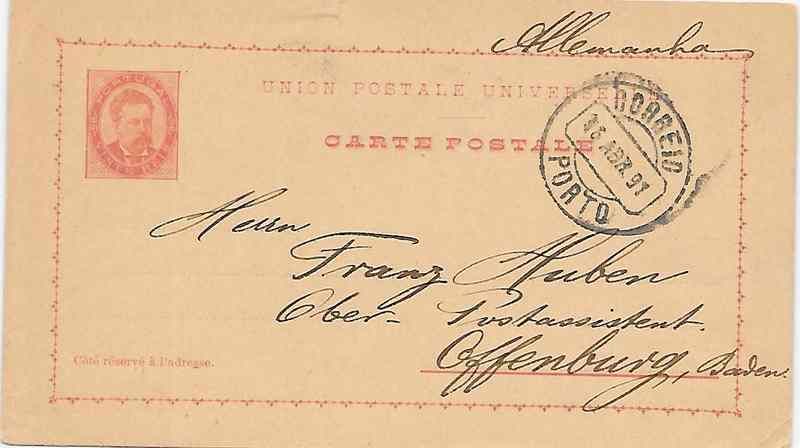 Allemanha
PORTUGAL
UNION POSTALE UNIVERSE
CARTE POSTALE
CORREIO
16 ABR. 91
PORTO
Herrn
Franz Huben
Ober- Postassistent.
Offenburg, Baden.
Côté réservé à l'adresse.